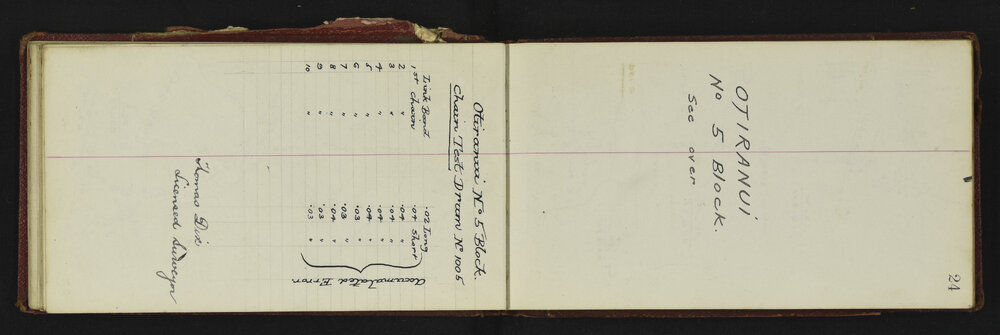 Otiranui No 5 Block.
Chain Test Drum No 1005
Link Band .02 Long
1st Chain .04 Short
2 " .04 "
3 " .04 "
4 " .04 "
5 " .04 "
6 " .03 "
7 " .03 "
8 " .04 "
9 " .03 "
10 " .03 "
Accumulated Error
Thomas Dix
Licensed Surveyor
24
OTIRANUI
No 5 Block.
See over